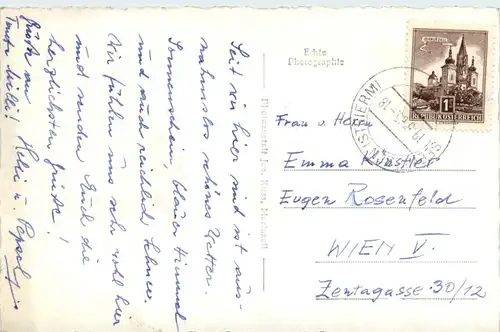 Seit wir hier sind ist aus-
nahmslos schönes Wetter.
Sonnenschein, blauer Himmel
und auch reichlich Schnee.
Wir fühlen uns sehr wohl hier
und senden Euch die
herzlichsten Grüße!
Tante Milli! Helli u. Peperl
Echte
Photographie
MARIAZELL
1S
REPUBLIK ÖSTERREICH
Frau u. Herrn
Emma Künstler
Eugen Rosenfeld
WIEN V.
Zentagasse 30/12